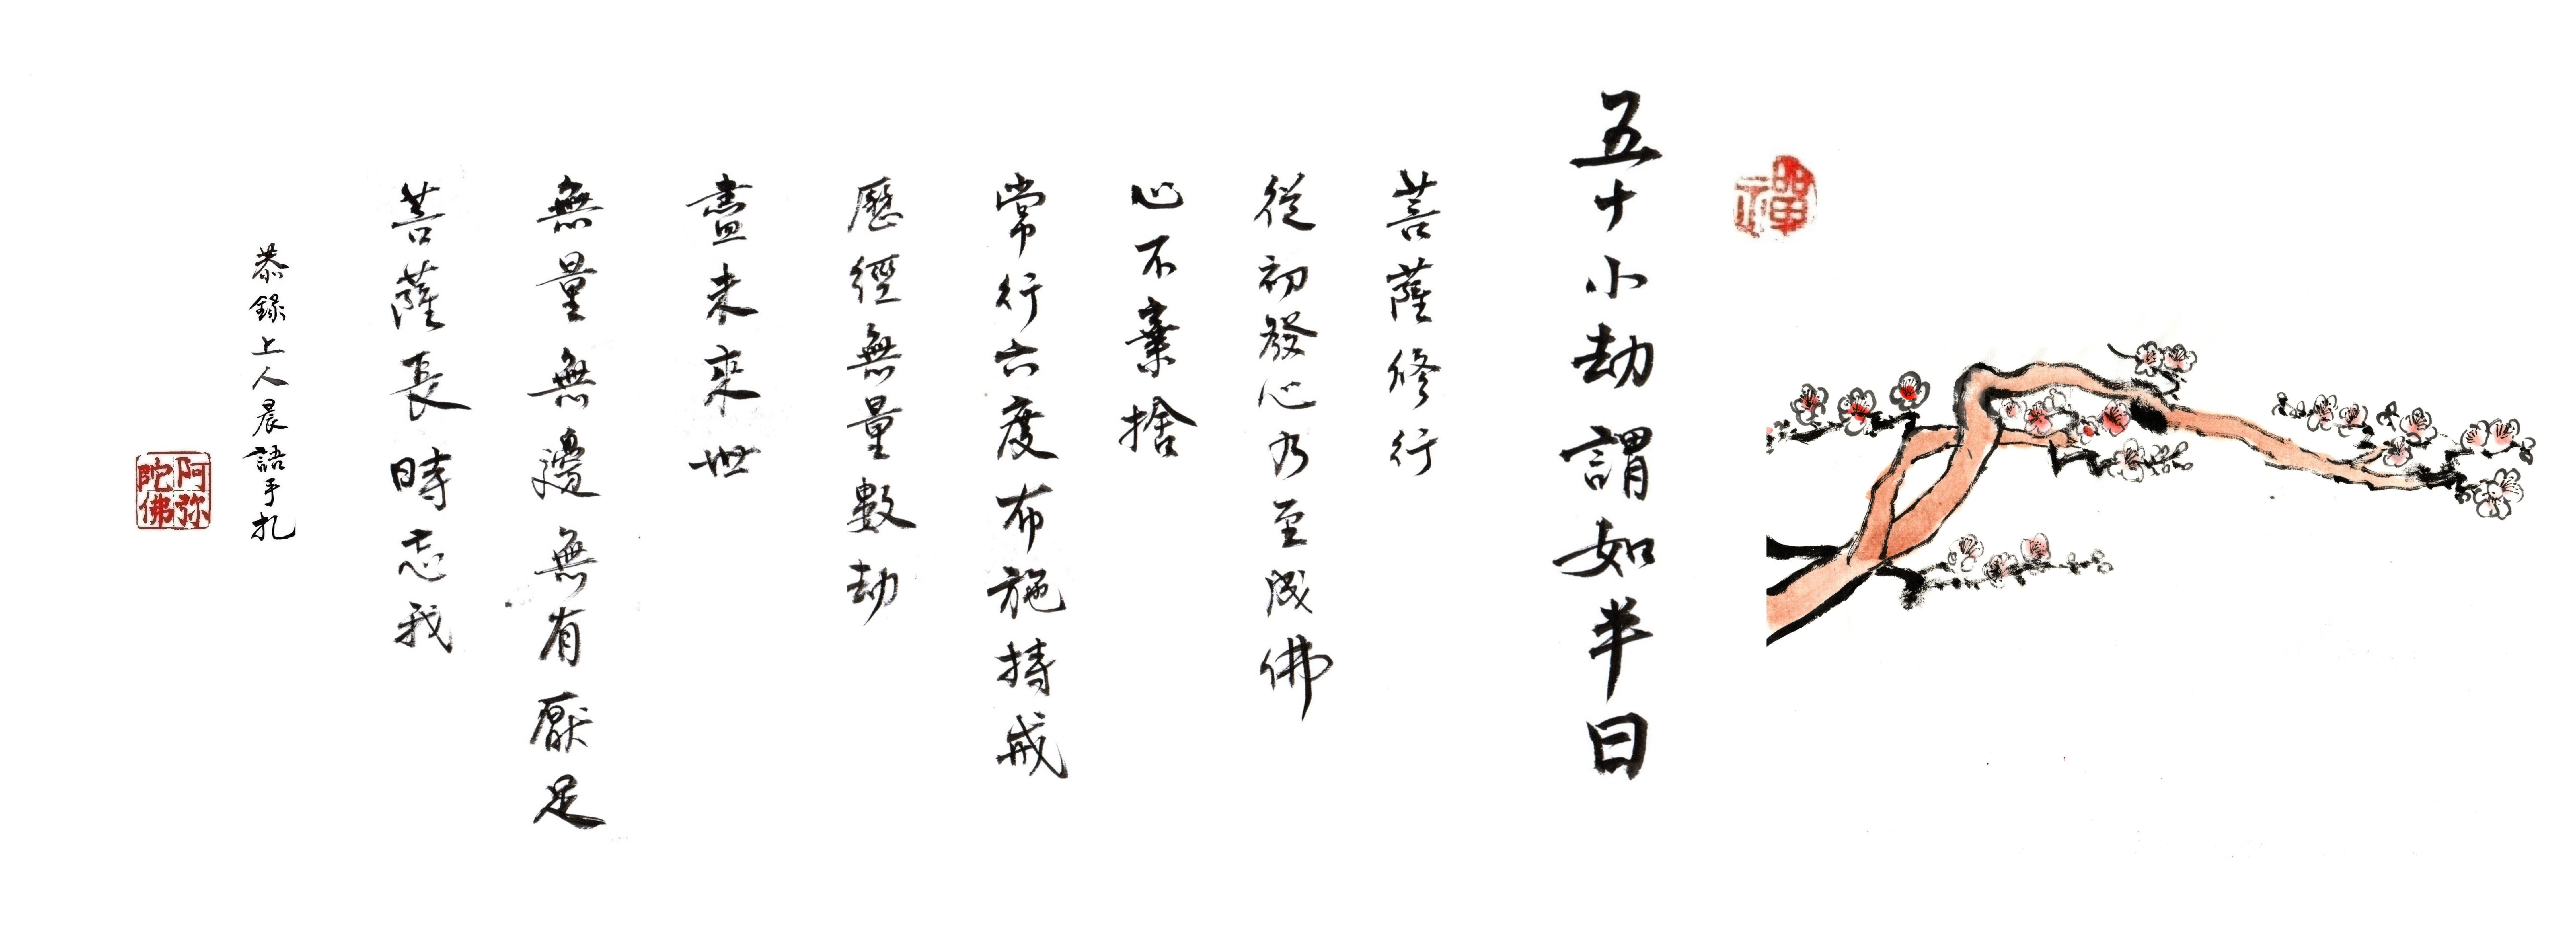 禪
五十小劫謂如半日
菩薩修行
從初發心乃至成佛
心不棄捨
常行六度布施持戒
歷經無量數劫
盡未來世
無量無邊無有厭足
菩薩長時忘我
恭錄上人晨語手扎
阿弥
陀佛